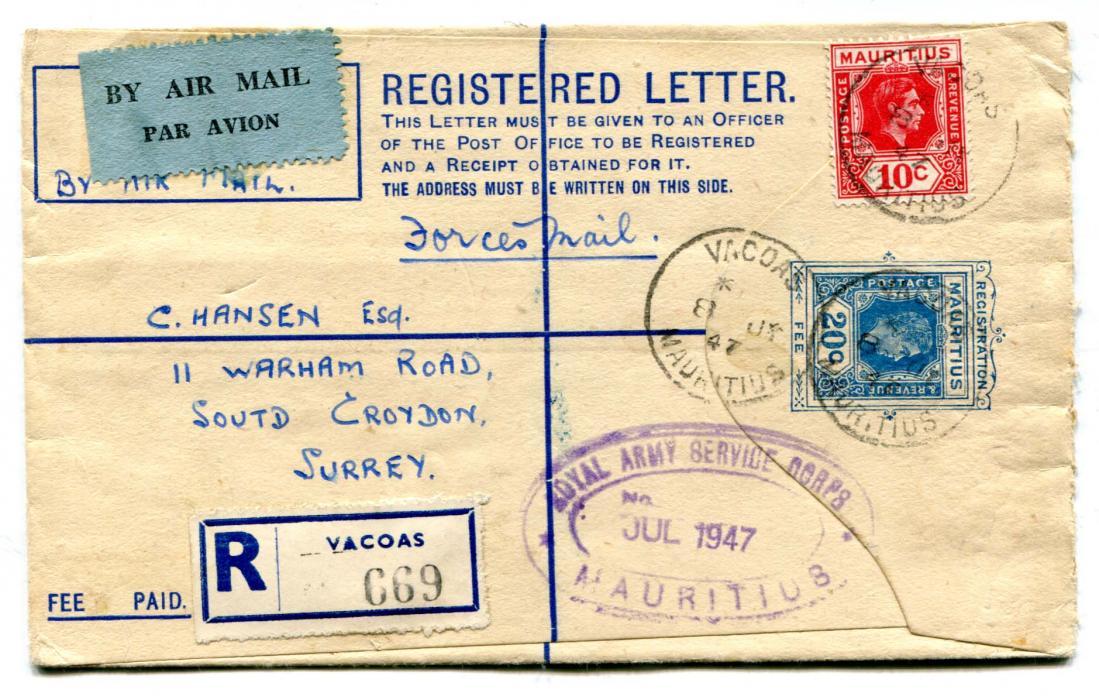 BY AIR MAIL
PAR AVION
BY AIR MAIL.
REGISTERED LETTER.
THIS LETTER MUST BE GIVEN TO AN OFFICER
OF THE POST OFFICE TO BE REGISTERED
AND A RECEIPT OBTAINED FOR IT.
THE ADDRESS MUST BE WRITTEN ON THIS SIDE.
MAURITIUS
POSTAGE
& REVENUE
10c
VACOAS
MAURITIUS
Forces Mail.
VACOAS
*
8 JY
47
MAURITIUS
REGISTRATION
FEE
MAURITIUS
POSTAGE
& REVENUE
20c
MAURITIUS
C. HANSEN Esq.
11 WARHAM ROAD,
SOUTD CROYDON,
SURREY.
ROYAL ARMY SERVICE CORPS
No.
JUL 1947
MAURITIUS
R
VACOAS
C69
FEE PAID.